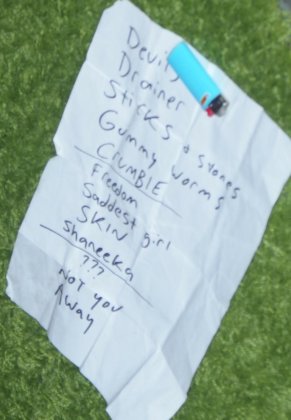 Drainer
Sticks + Stones
Gummy Worms
CRUMBLE
Freedom
Saddest girl
SKIN
Shaneeka
???
NOT you
Away